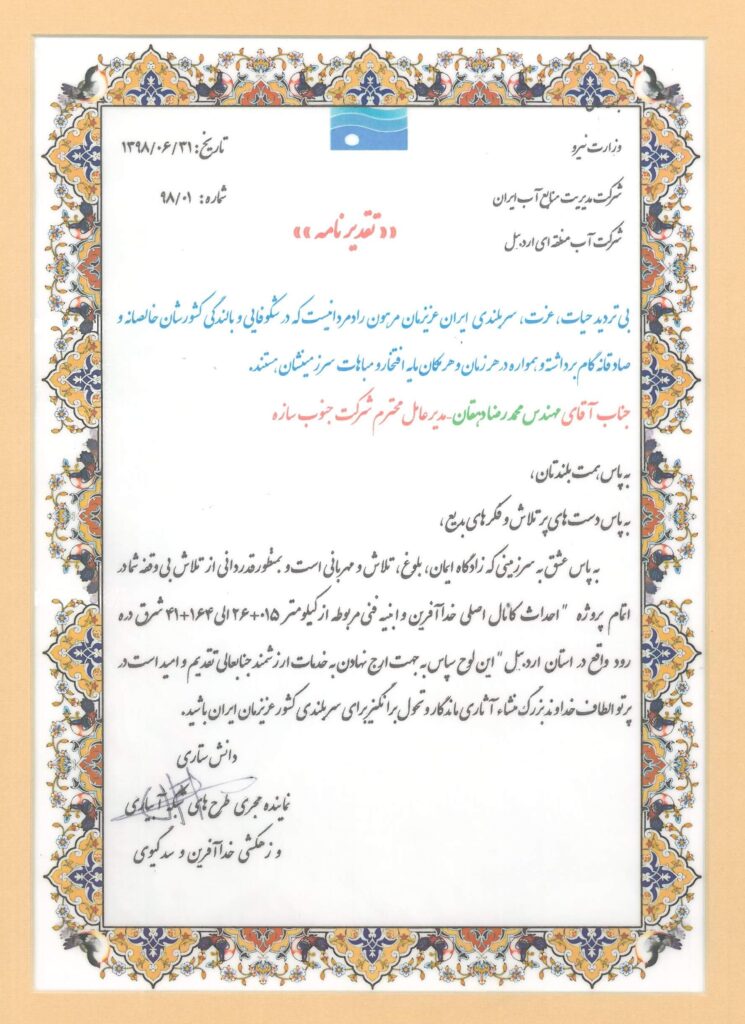 وزارت نیرو
تاریخ: ۱۳۹۸/۰۶/۳۱
شرکت مدیریت منابع آب ایران
شماره: ۹۸/۰۱
شرکت آب منطقه ای اردبیل
«« تقدیر نامه »»
بی تردید حیات، عزت، سربلندی ایران عزیزمان مرهون رادمردانیست که در شکوفایی و بالندگی کشورشان خالصانه و
صادقانه گام برداشته و همواره در هر زمان و هر مکان مایه افتخار و مباهات سرزمینشان هستند.
جناب آقای مهندس محمدرضا دهقان-مدیرعامل محترم شرکت جنوب سازه
به پاس همت بلندتان،
به پاس دست های پر تلاش و فکر های بدیع،
به پاس عشق به سرزمینی که زادگاه ایمان، بلوغ، تلاش و مهربانی است و بمنظور قدردانی از تلاش بی وقفه شما در
اتمام پروژه "احداث کانال اصلی خداآفرین و ابنیه فنی مربوطه از کیلومتر ۰۱۵+۲۶ الی ۱۶۴+۴۱ شرق دره
رود واقع در استان اردبیل" این لوح سپاس به جهت ارج نهادن به خدمات ارزشمند جنابعالی تقدیم و امید است در
پرتو الطاف خداوند بزرگ منشاء آثاری ماندگار و تحول برانگیز برای سربلندی کشور عزیزمان ایران باشید.
دانش ستاری
نماینده مجری طرح های آبیاری
و زهکشی خداآفرین و سد گیوی